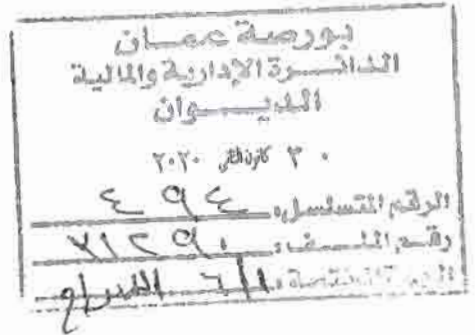 بورصة عمان
الدائرة الإدارية والمالية
الديوان
٣٠ كانون الثاني ٢٠٢٠
الرقم المتسلسل: ٤٩٤
رقم الملف: ٣١٢٩٠
الجهة المختصة: